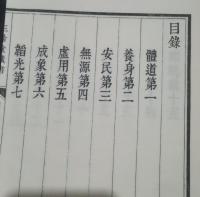 目錄
體道第一
養身第二
安民第三
無源第四
虛用第五
成象第六
韜光第七